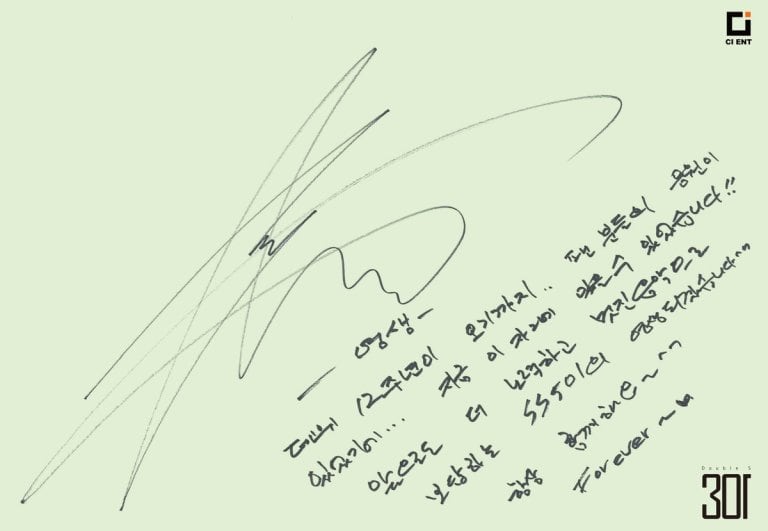 CI ENT
- 영생 -
데뷔 12주년이 오기까지.. 팬 분들의 응원이
있었기에... 지금 이 자리에 있을수 있었습니다!!
앞으로도 더 노력하고 멋진음악으로
보답하는 SS501의 영생되겠습니다^^
항상 함께해요~^^
Forever~♥
Double S
301